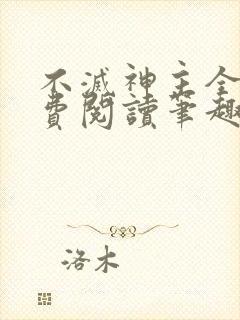 不滅神主全
費閱讀筆趣
洛木